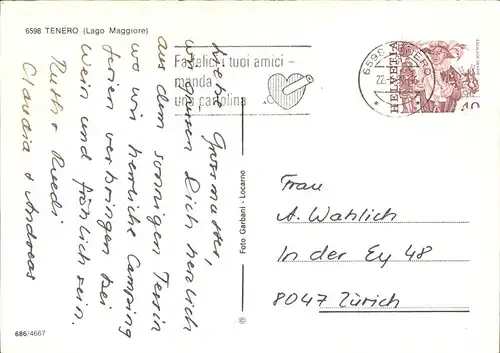 6598 TENERO (Lago Maggiore)
Fa felici i tuoi amici –
manda
una cartolina
6598 TENERO
22.
HELVETIA
40
Liebe Grossmutter,
wir grüssen Dich herzlich
aus dem sonnigen Tessin
wo wir herrliche Camping
ferien verbringen bei
Wein und fröhlich sein.
Ruth + Ruedi
Claudia + Andreas
Foto Garbani - Locarno
©
Frau
A. Wahlich
In der Ey 48
8047 Zürich
686/4667